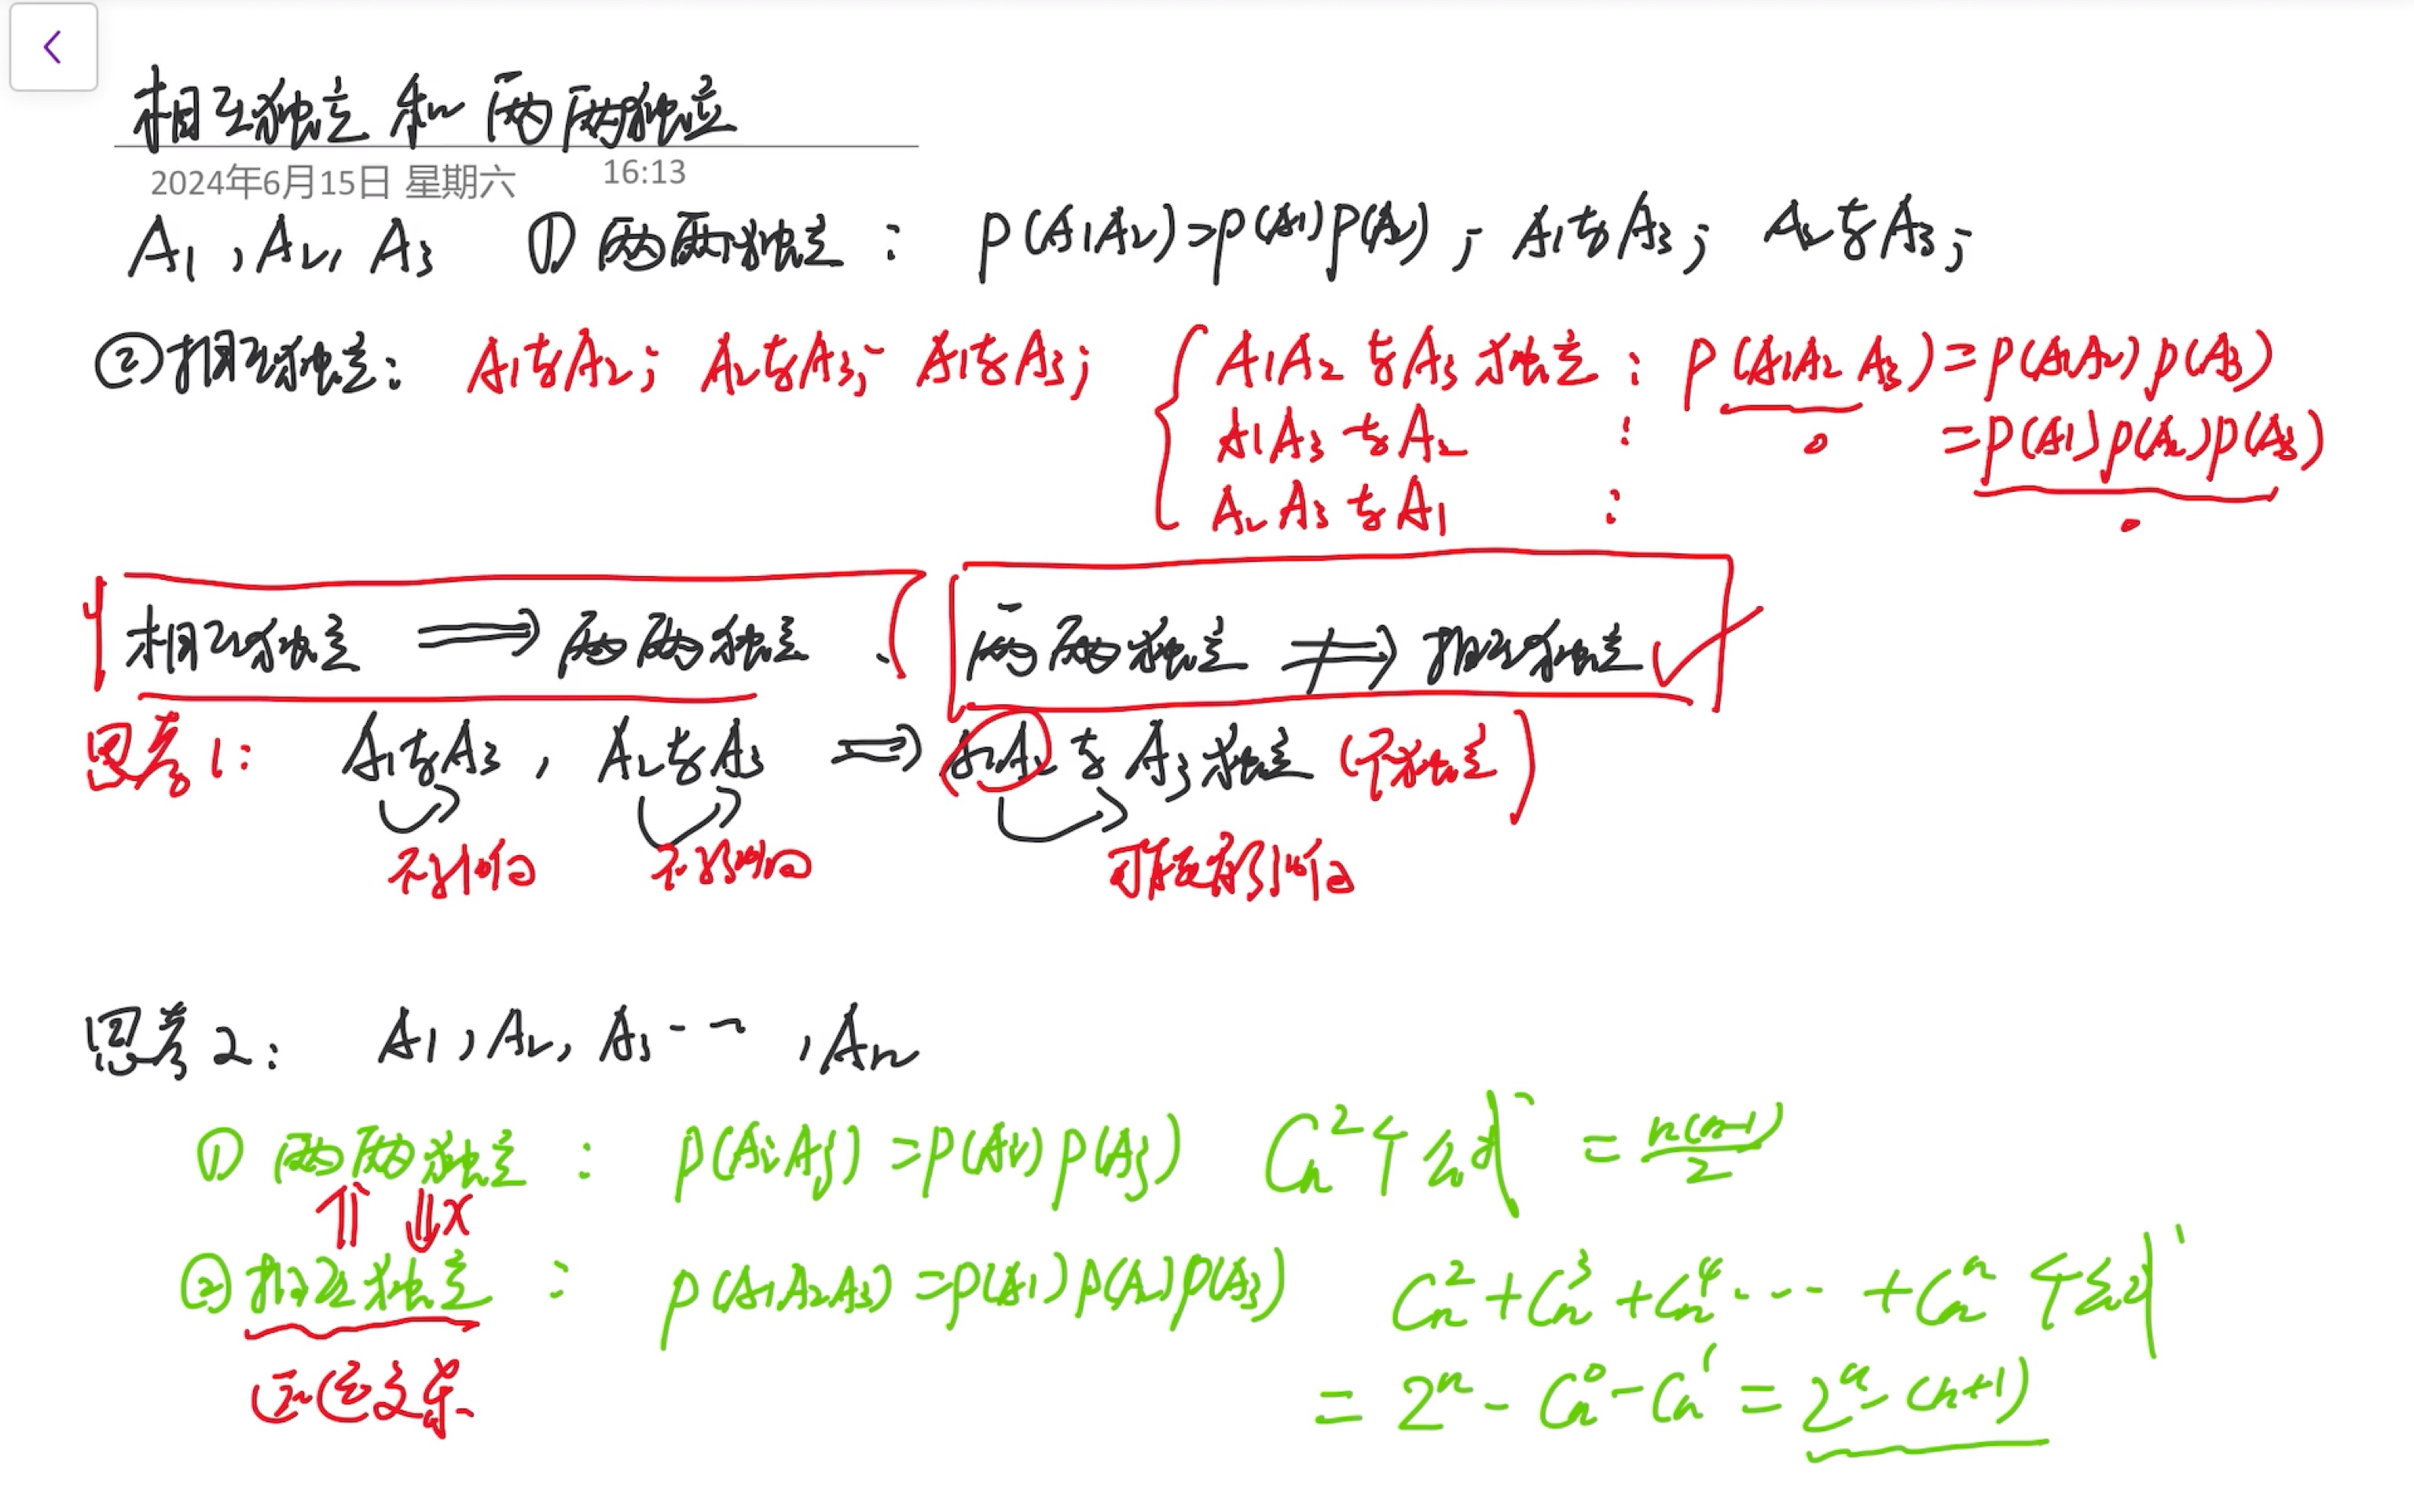 相互独立 和 两两独立
2024年6月15日 星期六 16:13
A₁, A₂, A₃ ① 两两独立: P(A₁A₂)=P(A₁)P(A₂); A₁与A₃; A₂与A₃;
②相互独立: A₁与A₂; A₂与A₃; A₁与A₃; { A₁A₂与A₃独立: P(A₁A₂A₃)=P(A₁A₂)P(A₃)
A₁A₃与A₂ : =P(A₁)P(A₂)P(A₃)
A₂A₃与A₁ :
相互独立 ⟹ 两两独立、 两两独立 ≠⟹ 相互独立 ✓
思考1: A₁与A₃, A₂与A₃ ⟹ A₁A₂与A₃独立 (不独立)
不影响 不影响 可能有影响
思考2: A₁, A₂, A₃……, Aₙ
① 两两独立: P(AᵢAⱼ)=P(Aᵢ)P(Aⱼ) Cₙ²个公式 = n(n-1)/2
⇑ ⇓×
②相互独立: P(A₁A₂A₃)=P(A₁)P(A₂)P(A₃) Cₙ²+Cₙ³+Cₙ⁴……+Cₙⁿ个
= 2ⁿ-Cₙ⁰-Cₙ¹ = 2ⁿ-(n+1)